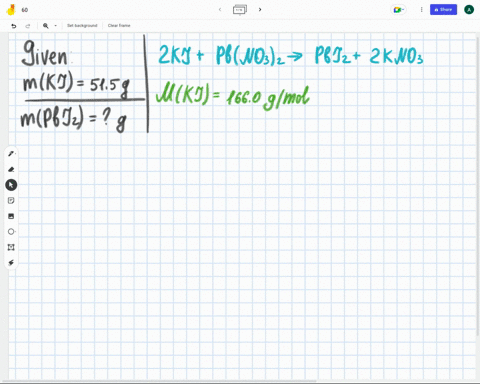 60
Share
A
Set background
Clear frame
Given:
m(KI) = 51.5 g
m(PbI₂) = ? g
2KI + Pb(NO₃)₂ → PbI₂ + 2KNO₃
M(KI) = 166.0 g/mol